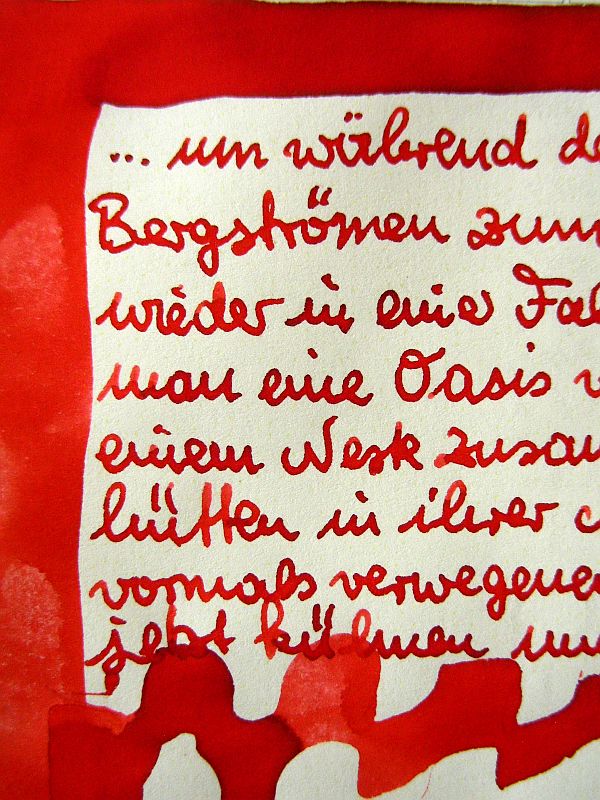 ... um während de
Bergströmen zum
wieder in eine Fal
man eine Oasis v
einem Nest zusam
hütten in ihrer
vormals verwegenen
jetzt kühnen und